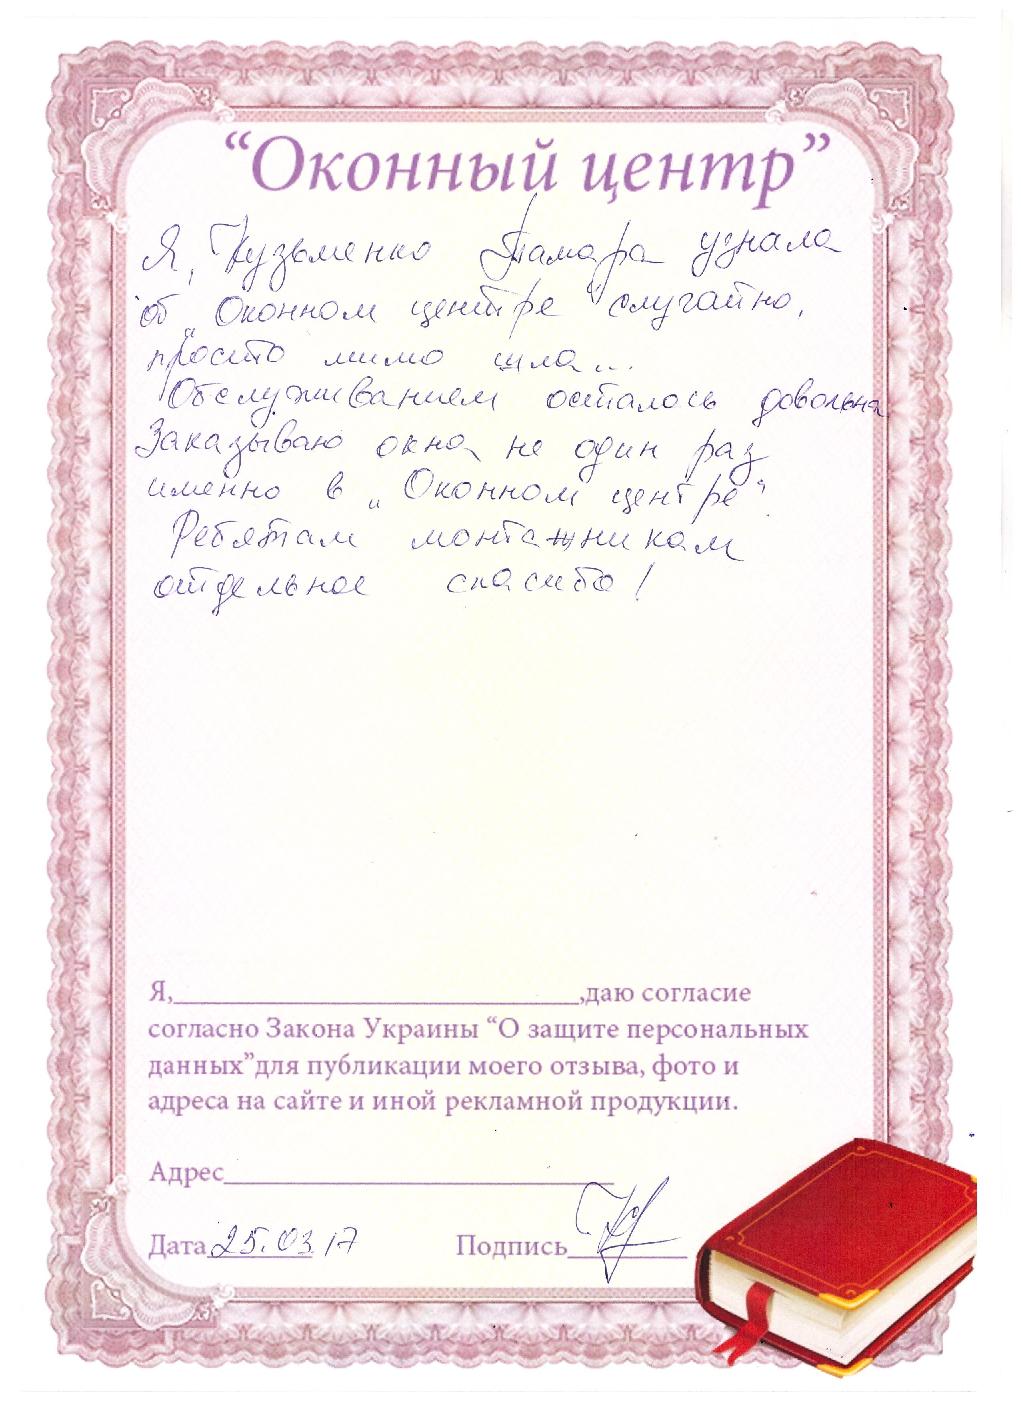 “Оконный центр”
Я, Кузьменко Тамара узнала
об „Оконном центре“ случайно,
просто мимо шла...
Обслуживанием осталось довольна
Заказываю окна не один раз
именно в „Оконном центре“.
Ребятам монтажникам
отдельное спасибо!
Я,______________________________,даю согласие
согласно Закона Украины “О защите персональных
данных”для публикации моего отзыва, фото и
адреса на сайте и иной рекламной продукции.
Адрес_____________________________
Дата 25.03.17 Подпись_________